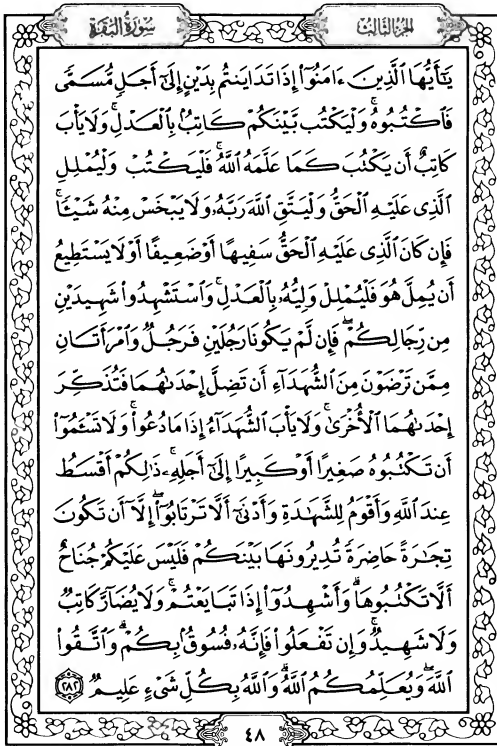 الجزء الثالث
سورة البقرة
يَٰٓأَيُّهَا ٱلَّذِينَ ءَامَنُوٓا۟ إِذَا تَدَايَنتُم بِدَيْنٍ إِلَىٰٓ أَجَلٍ مُّسَمًّى
فَٱكْتُبُوهُ ۚ وَلْيَكْتُب بَّيْنَكُمْ كَاتِبٌۢ بِٱلْعَدْلِ ۚ وَلَا يَأْبَ
كَاتِبٌ أَن يَكْتُبَ كَمَا عَلَّمَهُ ٱللَّهُ ۚ فَلْيَكْتُبْ وَلْيُمْلِلِ
ٱلَّذِى عَلَيْهِ ٱلْحَقُّ وَلْيَتَّقِ ٱللَّهَ رَبَّهُۥ وَلَا يَبْخَسْ مِنْهُ شَيْـًٔا ۚ
فَإِن كَانَ ٱلَّذِى عَلَيْهِ ٱلْحَقُّ سَفِيهًا أَوْ ضَعِيفًا أَوْ لَا يَسْتَطِيعُ
أَن يُمِلَّ هُوَ فَلْيُمْلِلْ وَلِيُّهُۥ بِٱلْعَدْلِ ۚ وَٱسْتَشْهِدُوا۟ شَهِيدَيْنِ
مِن رِّجَالِكُمْ ۖ فَإِن لَّمْ يَكُونَا رَجُلَيْنِ فَرَجُلٌ وَٱمْرَأَتَانِ
مِمَّن تَرْضَوْنَ مِنَ ٱلشُّهَدَآءِ أَن تَضِلَّ إِحْدَىٰهُمَا فَتُذَكِّرَ
إِحْدَىٰهُمَا ٱلْأُخْرَىٰ ۚ وَلَا يَأْبَ ٱلشُّهَدَآءُ إِذَا مَا دُعُوا۟ ۚ وَلَا تَسْـَٔمُوٓا۟
أَن تَكْتُبُوهُ صَغِيرًا أَوْ كَبِيرًا إِلَىٰٓ أَجَلِهِۦ ۚ ذَٰلِكُمْ أَقْسَطُ
عِندَ ٱللَّهِ وَأَقْوَمُ لِلشَّهَٰدَةِ وَأَدْنَىٰٓ أَلَّا تَرْتَابُوٓا۟ ۖ إِلَّآ أَن تَكُونَ
تِجَٰرَةً حَاضِرَةً تُدِيرُونَهَا بَيْنَكُمْ فَلَيْسَ عَلَيْكُمْ جُنَاحٌ
أَلَّا تَكْتُبُوهَا ۗ وَأَشْهِدُوٓا۟ إِذَا تَبَايَعْتُمْ ۚ وَلَا يُضَآرَّ كَاتِبٌ
وَلَا شَهِيدٌ ۚ وَإِن تَفْعَلُوا۟ فَإِنَّهُۥ فُسُوقٌۢ بِكُمْ ۗ وَٱتَّقُوا۟
ٱللَّهَ ۖ وَيُعَلِّمُكُمُ ٱللَّهُ ۗ وَٱللَّهُ بِكُلِّ شَىْءٍ عَلِيمٌ ٢٨٢
٤٨